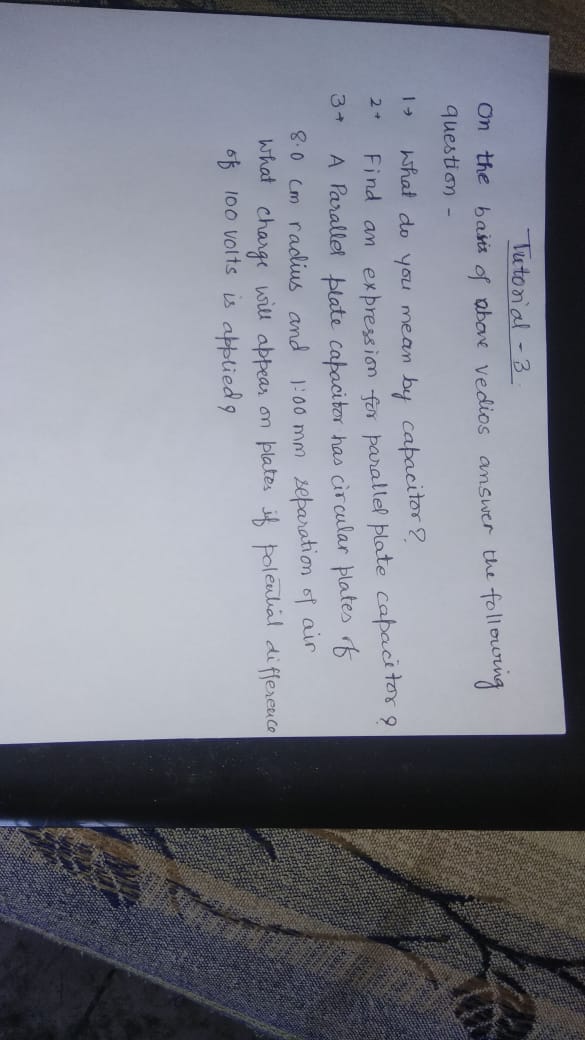 Tutorial - 3.
On the basis of above vedios answer the following
question -
1→ What do you mean by capacitor?
2→ Find an expression for parallel plate capacitor?
3→ A Parallel plate capacitor has circular plates of
8.0 cm radius and 1.00 mm separation of air
What charge will appear on plates if potential difference
of 100 volts is applied?